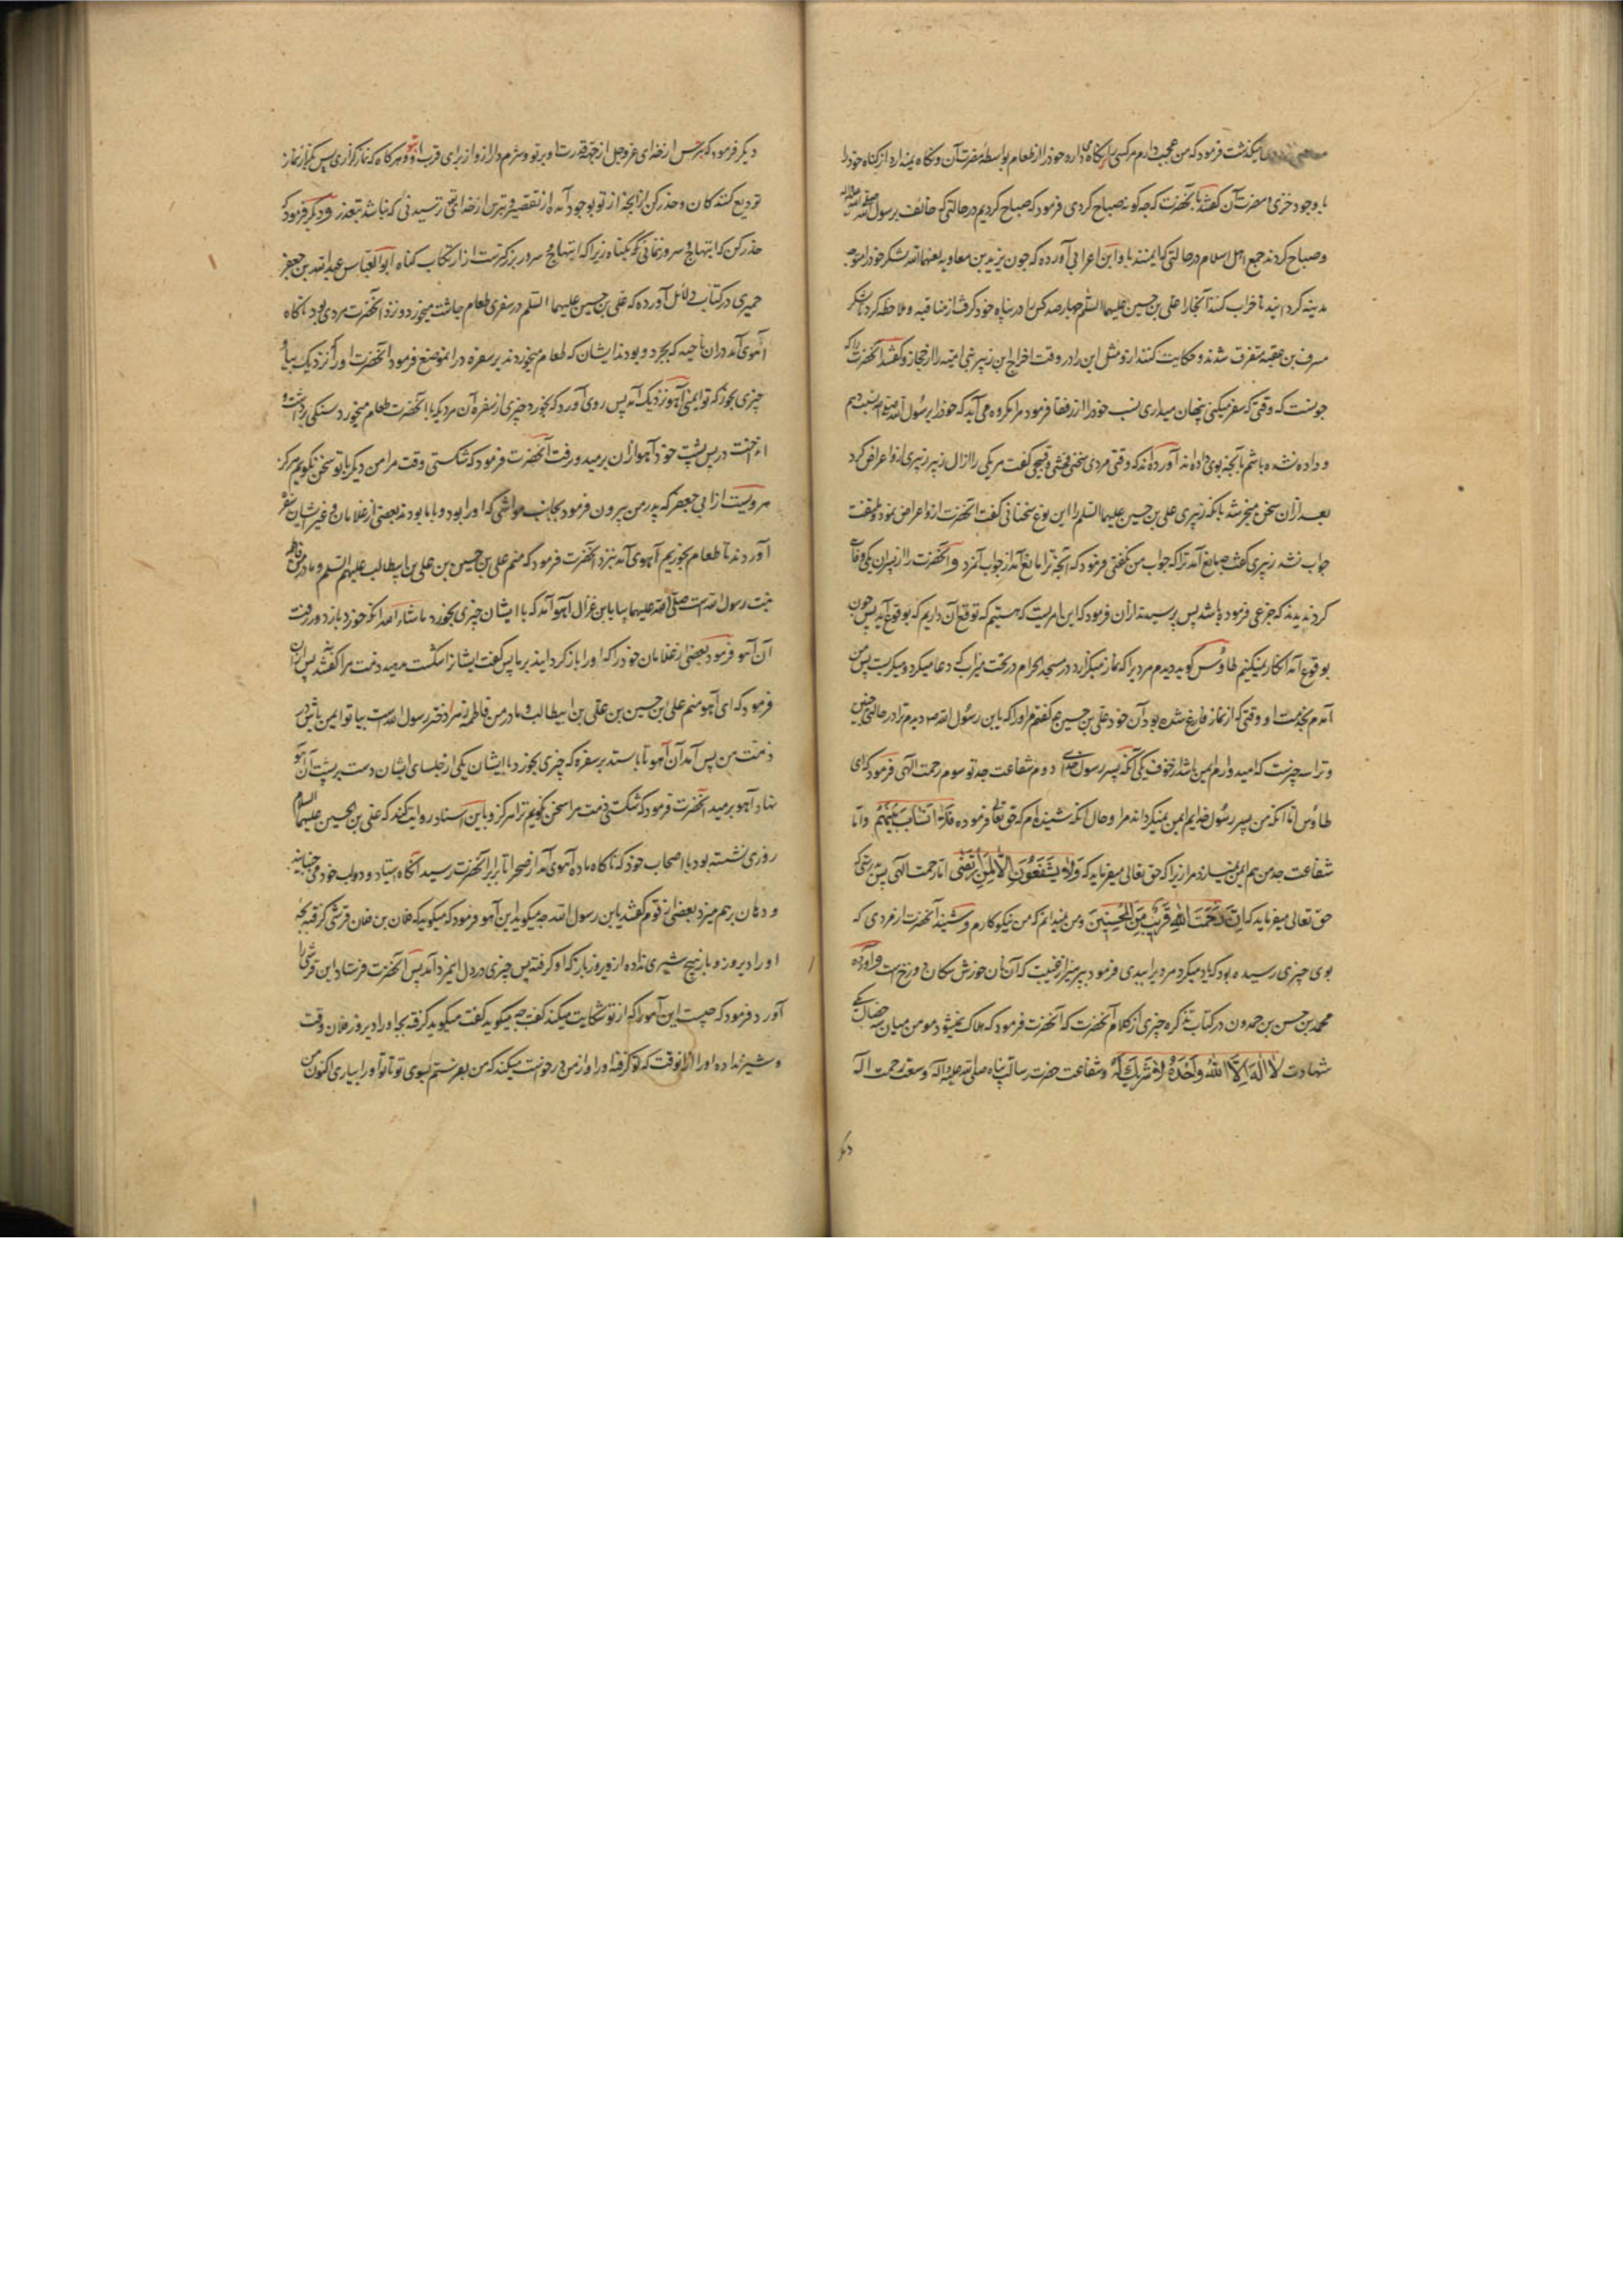 میگذشت فرمود که من عجب دارم از کسی که نگاه میدارد خود را از طعام بواسطه مضرت آن و نگاه نمیدارد از گناه خود را
با وجود خزی و مضرت آن گفتند بآنحضرت که چه گونه صباح کردی فرمود که صباح کردیم در حالتی که خائف برسول الله
و صباح کردند جمع اهل اسلام در حالتی که ایمنند باو و ابن اعرابی آورده که چون یزید بن معاویه لعنهما الله لشکر خود را متوجه
مدینه گردانید تا خراب کنند آنجا را علی بن حسین علیهما السلم چهارصد کس را در پناه خود گرفت از منافیه و ملاحظه کرد تا لشکر
مسرف بن عقبه متفرق شدند و حکایت کنند ازو مثل این را در وقت اخراج ابن زبیر بنی امیه را از حجاز و گفتند آنحضرت را که
چونست که وقتی که سفر میکنی پنهان میداری نسب خود را از رفقا فرمود مرا مکروه می آید که خود را برسول الله نسبت دهم
و داده نشده باشم بآنچه بوی داده اند آورده اند که وقتی مردی سخنی فحشی و قبیحی گفت مر یکی را از آل زبیر زبیری ازو اعراض کرد
بعد از آن سخن منجر شد بانکه زبیری علی بن حسین علیهما السلم را این نوع سخنانی گفت آنحضرت ازو اعراض نمود و ملتفت
جواب نشد زبیری گفت چه مانع آمد ترا که جواب من نگفتی فرمود که آنچه ترا مانع آمد از جواب آنمرد و آنحضرت را از پسران یکی وفات
کرد ندیدند که جزعی فرموده باشد پس پرسیدند از آن فرمود که این امریست که هستیم که توقع آن داریم که بوقوع آید پس چون
بوقوع آمد انکار نمیکنیم طاوس گوید دیدم مردیرا که نماز میگزارد در مسجد الحرام در تحت میزاب که دعا میکرد و میگریست پس من
آمدم بخدمت او وقتی که از نماز فارغ شده بود آن خود علی بن حسین ع گفتم او را که یا بن رسول الله ص دیدم ترا در حالتی چنین
و ترا سه چیزست که امیدوارم ایمن باشد از خوف یکی آنکه پسر رسول خدای دوم شفاعت جد تو سوم رحمت الهی فرمود که ای
طاوس اما آنکه من پسر رسول خدایم ایمن نمیگرداند مرا و حال آنکه شنیده ام که حق تعالی فرموده فَلَا أَنسَابَ بَيْنَهُمْ و اما
شفاعت جد من هم ایمن نمیسازد مرا زیرا که حق تعالی میفرماید که وَلَا يَشْفَعُونَ إِلَّا لِمَنِ ارْتَضَى اما رحمت الهی پس بدرستی که
حق تعالی میفرماید که إِنَّ رَحْمَتَ اللهِ قَرِيبٌ مِنَ الْمُحْسِنِينَ و من نمیدانم که من نیکوکارم و شنید آنحضرت از مردی که
بوی چیزی رسیده بود که یاد میکرد مردیرا ببدی فرمود بپرهیز از غیبت که آن نان خورش سگان دوزخ است و آورده
محمد بن حسن بن حمدون در کتاب تذکره چیزی از کلام آنحضرت که آنحضرت فرمود که هلاک نمیشود مومن میان سه خصال یکی
شهادت لَا إِلٰهَ إِلَّا اللهُ وَحْدَهُ لَا شَرِيكَ لَهُ و شفاعت حضرت رسالت پناه صلی الله علیه و آله و سعت رحمت اله
دیگر
دیگر فرمود که بترس از خدای عزوجل از جهة قدرت او بر تو و شرم دار ازو از برای قرب او بتو و هر گاه که نماز گزاری پس بگزار نماز
تودیع کنندگان و حذر کن از آنچه از تو بوجود آمده از تقصیر و بترس از خدای ترسیدنی که نباشد بتعذر و دیگر فرمود که
حذر کن که ابتهاج و سرور نمائی بگناه زیرا که ابتهاج و سرور بزرگترست از ارتکاب گناه ابو العباس عبدالله بن جعفر
حمیری در کتاب دلائل آورده که علی بن حسین علیهما السلم در سفری طعام چاشت میخورد و نزد آنحضرت مردی بود ناگاه
آهوی آمد در آن ناحیه که بچرد و بودند ایشان که طعام میخوردند بر سفره در آنموضع فرمود آنحضرت او را که نزدیک بیا و
چیزی بخور که تو ایمنی آهو نزدیک آمد پس روی آورد که بخورد چیزی از سفره آن مردیکه با آنحضرت طعام میخورد سنگی برداشت و
انداخت در پس پشت خود آهو از آن برمید و رفت آنحضرت فرمود که شکستی وقت مرا من دیگر با تو سخن نگویم هرگز
مرویست از ابی جعفر که پدر من بیرون فرمود بجانب مواشی که او را بود و با ما بودند بعضی از غلامان و غیر ایشان سفره
آوردند تا طعام بخوریم آهوی آمد نزد آنحضرت فرمود که منم علی بن حسین بن علی بن ابیطالب علیهم السلم و مادر من فاطمه
بنت رسول الله است صلی الله علیهما بیا باین غزال آهو آمد که با ایشان چیزی بخورد ما شاء الله آنکه خورد باز دور رفت
آن آهو فرمود بعضی از غلامان خود را که او را باز گردانید بر ما پس گفت ایشانرا مشکنید ذمت مرا گفتند پس
فرمود که ای آهو منم علی ابن حسین بن علی بن ابیطالب و مادر من فاطمه زهرا دختر رسول الله است بیا تو ایمن باش در
ذمت من پس آمد آن آهو تا بایستد بر سفره که چیزی بخورد با ایشان یکی از جلسای ایشان دست بر پشت آن آهو
نهاد آهو برمید آنحضرت فرمود که شکستی ذمت مرا سخن نگویم ترا هرگز و باین اسناد روایت کند که علی بن الحسین علیهما السلام
روزی نشسته بود با اصحاب خود که ناگاه ماده آهوی آمد از صحرا تا برابر آنحضرت رسید آنگاه ایستاد و دو لب خود می جنبانید
و دهان بر هم میزد بعضی از قوم گفتند یا بن رسول الله چه میگوید این آهو فرمود که میگوید که فلان بن فلان قرشی گرفته بچه
او را دیروز و باز هیچ شیری نداده از دیروز باز که او گرفته پس چیزی در دل آنمرد آمد پس آنحضرت فرستاد این قرشی را
آورد فرمود که چیست این آهو را که از تو شکایت میکند گفت چه میگوید گفت میگوید گرفته بچه او را دیروز فلان وقت
و شیر نداده او را از آنوقت که تو گرفته او را و از من درخواست میکند که من بفرستم بسوی تو تا تو او را بیاری اکنون من